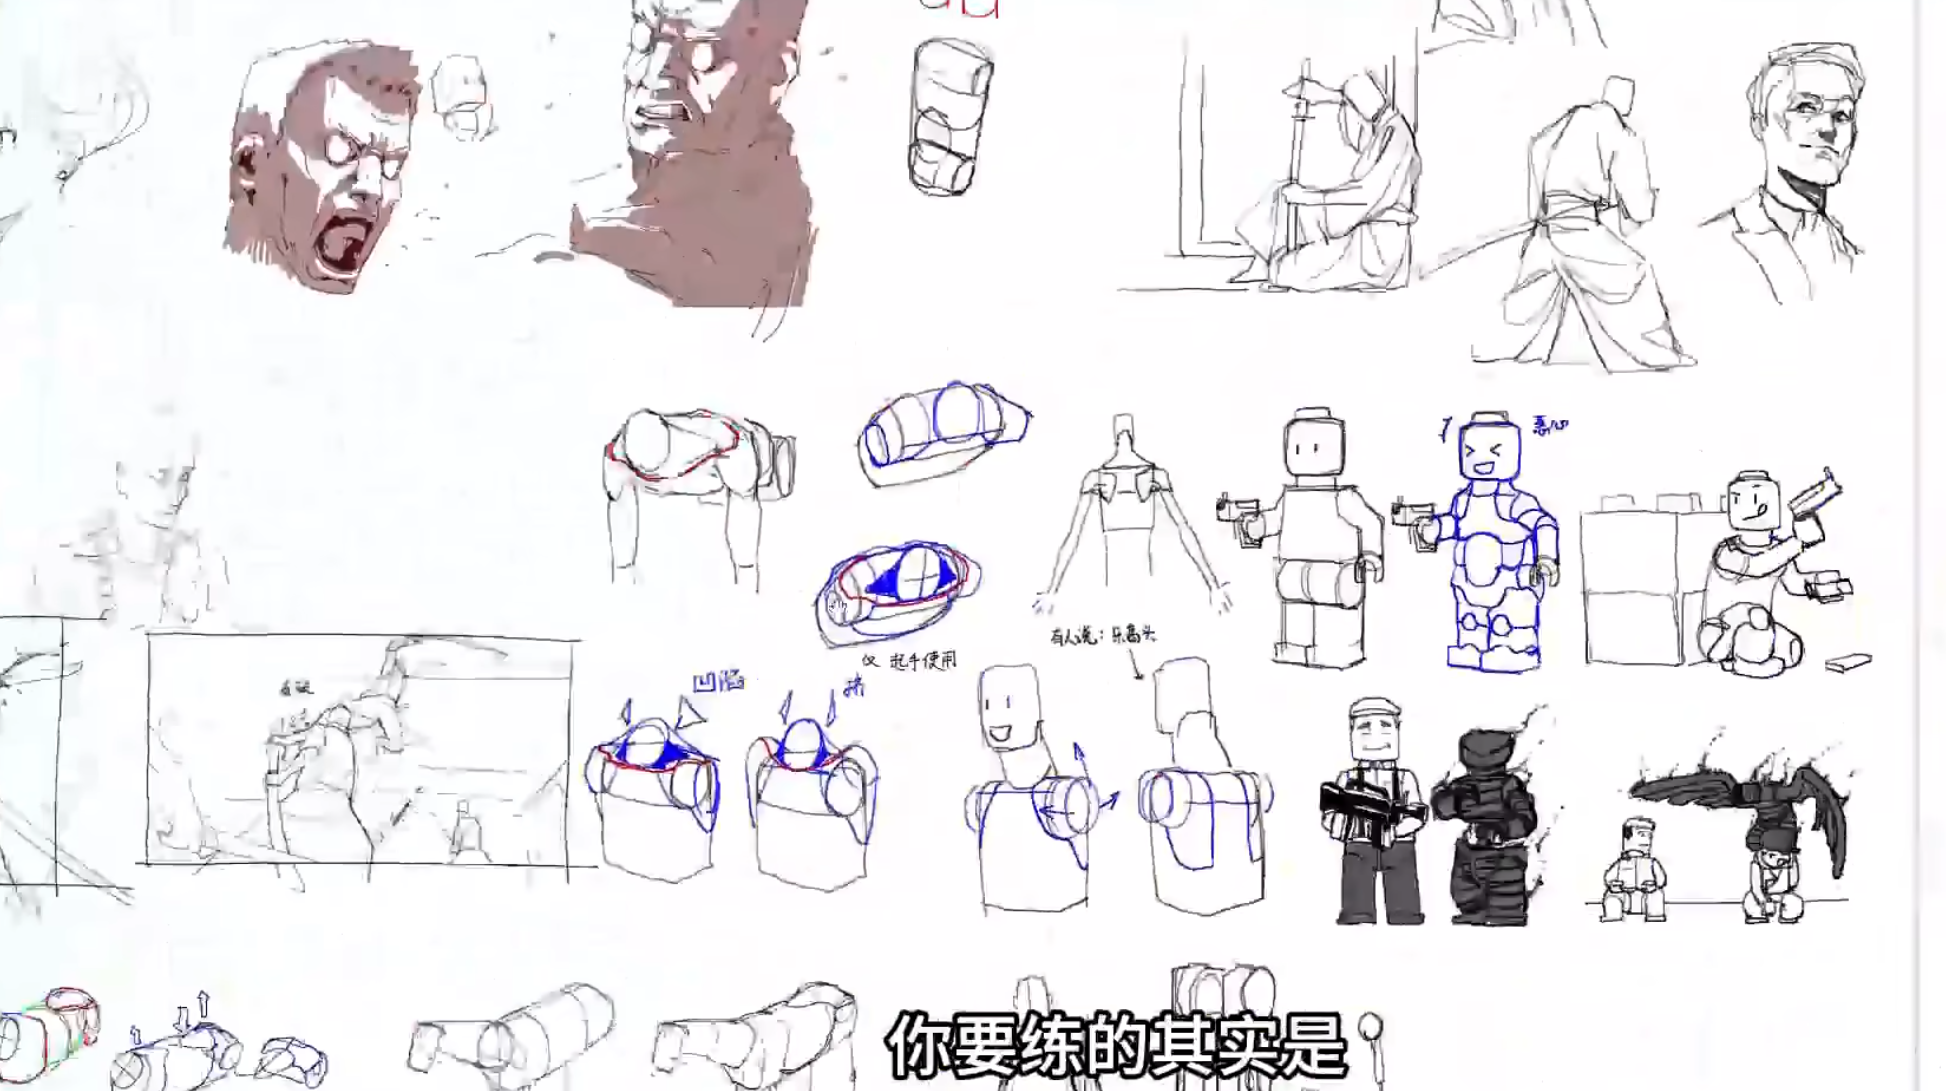 恶心
有人说：乐高头
仅 起手使用
凹陷
挤
你要练的其实是